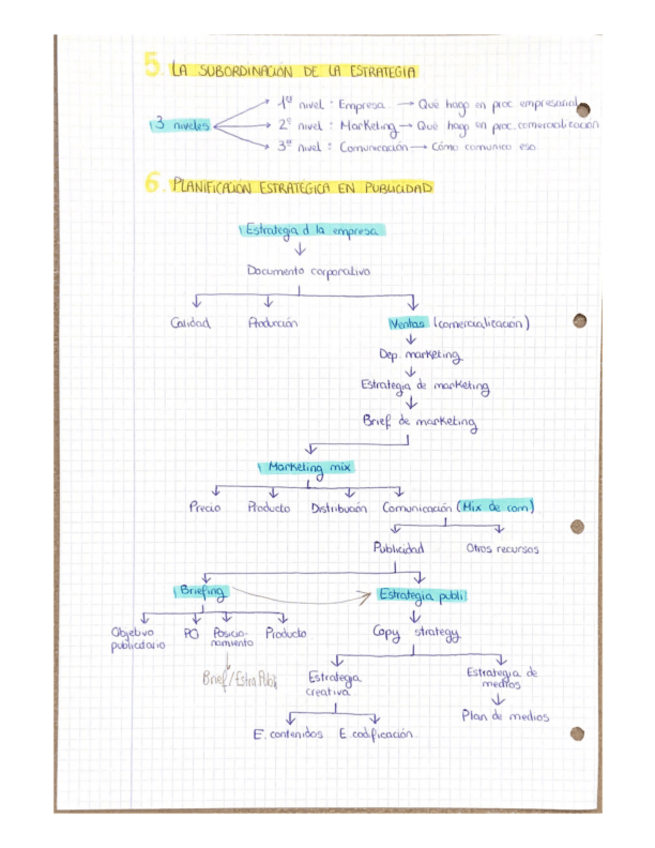 5. LA SUBORDINACIÓN DE LA ESTRATEGIA
1er nivel : Empresa → Qué hago en proc. empresarial
3 niveles → 2º nivel : Marketing → Qué hago en proc. comercialización
3er nivel : Comunicación → Cómo comunico eso
6. PLANIFICACIÓN ESTRATÉGICA EN PUBLICIDAD
Estrategia d la empresa
Documento corporativo
Calidad Producción Ventas (comercialización)
Dep. marketing
Estrategia de marketing
Brief de marketing
Marketing mix
Precio Producto Distribución Comunicación (Mix de com)
Publicidad Otros recursos
Briefing Estrategia publi
Objetivo publicitario PO Posicio-namiento Producto Copy strategy
Brief/Estra Publi Estrategia creativa Estrategia de medios
Plan de medios
E. contenidos E codificación